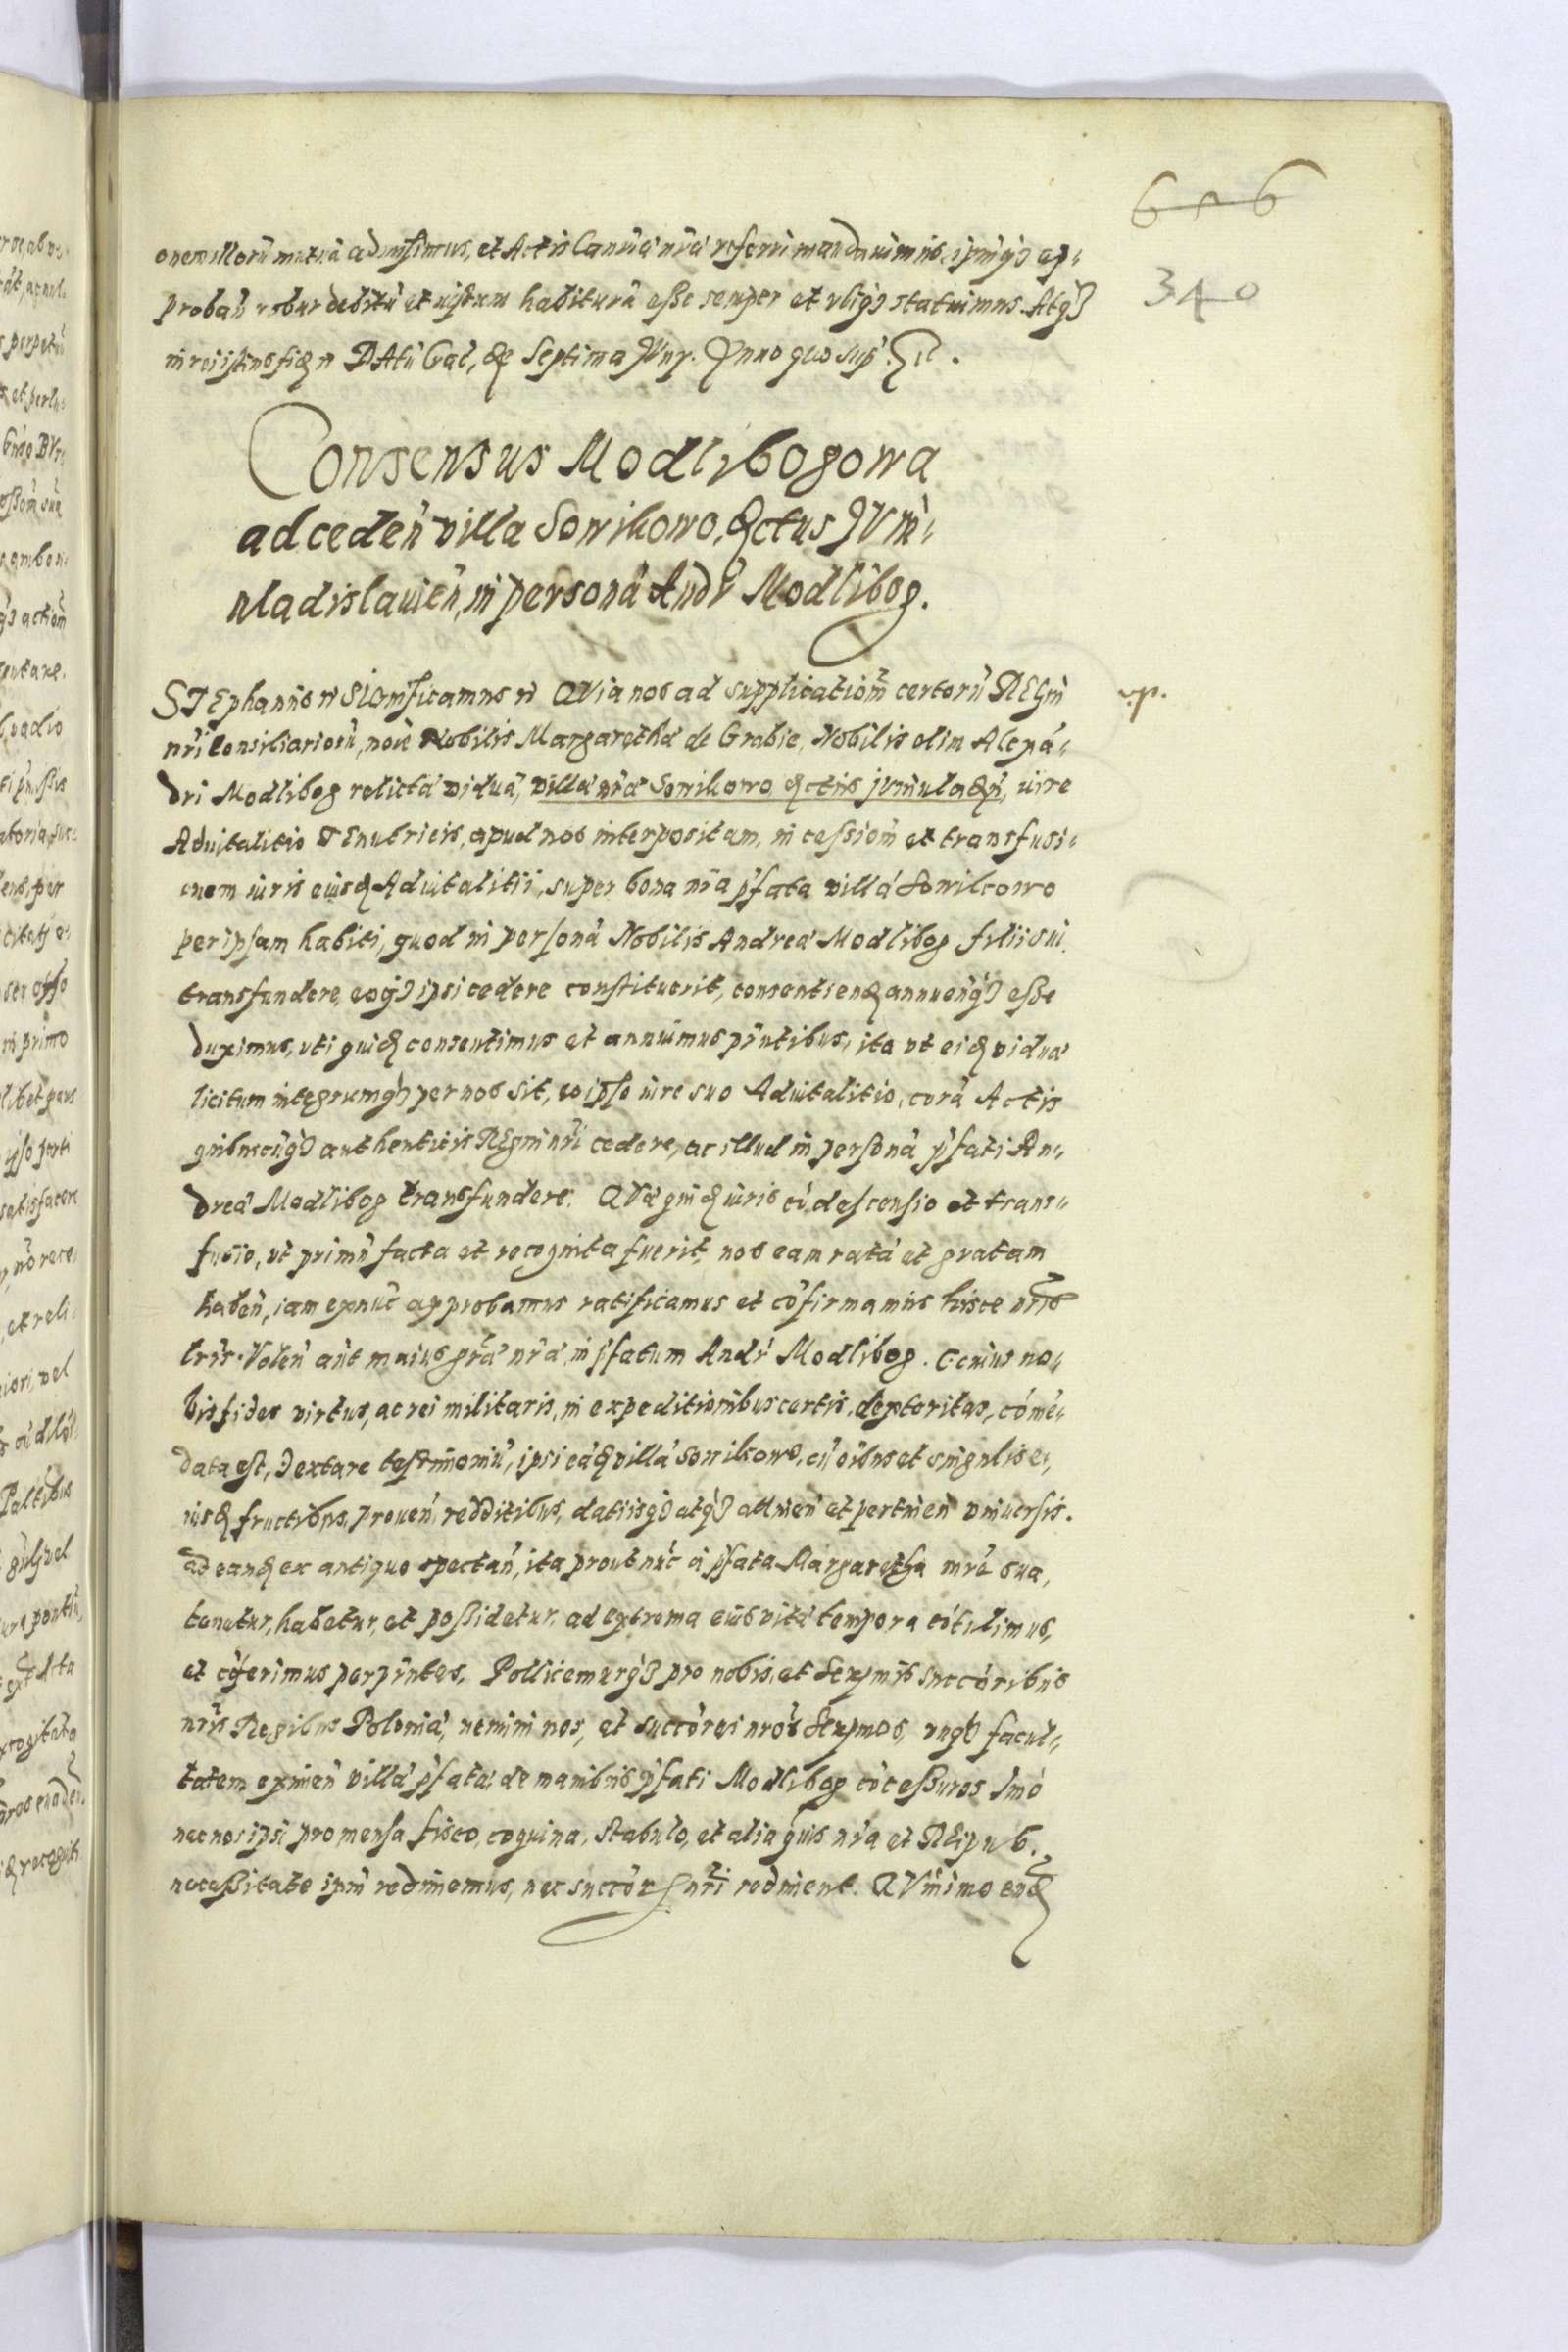 656
340
onem illorũ mutuã admisimus, et Actis Cancũa nr̃a referri mandauimus, ipmq3 ap„
proban̄ robur debitũ et iustum habiturã esse semper et vbiq3 statuimus. Atq3
in rei
DAtũ Ged, die Septima Juny. Anno quo sup̃.
Consensus Modlibogowa
ad ceden̄ villa Sowikowo, Dctus JVni„
uladislauien̄, in personã Andr̃ Modlibog.
STEphanus n̄ SIGnificamus n̄ QVia nos ad supplicatiom̃ certorũ REGni
v.p.
nr̃i Consiliariorũ, noīe Nobilis Margarethæ de Grabie, Nobilis olim Alexã„
dri Modlibog relictæ viduæ, villæ nr̃æ Sowikowo Dctus juniuladn̄, iure
Aduitalitio TEnutricis, apud nos interpositam, in cessiom̃ et transfusi„
onem iuris eiusd Aduitalitii, super bona nr̃a p̃fata villã Sowikowo
per ipsam habiti, quod in personã Nobilis Andreæ Modlibog filii sui
transfundere, eoq3 ipsi cedere constituerit, consentiend annuen̄q3 esse
duximus, uti quid consentimus et annuimus pn̄tibus, ita ut eid viduæ
licitum integrumq3 per nos sit, eo ipso iure suo Aduitalitio, corã Actis
quibuscũq3 authenticis REgni nr̃i cedere, ac illud in personã p̃fati An„
dreæ Modlibog transfundere. QVæ quid iuris cũ descensio et trans„
fusio, ut primũ facta et recognita fuerit, nos eam ratã et gratam
haben̄, iam exnũc approbamus ratificamus et cõfirmamus hisce nr̃is
lr̃is. Volen̄ aũt maius gr̃ã nr̃ã, in p̃fatum Andr̃ Modlibog. Cuius no„
bis fides virtus, ac rei militaris, in expeditionibus certis, dexteritas, cõmẽ„
data est, extare testimoniũ, ipsi eãd villã Sowikowo, cũ oĩbus et singulis e„
iusd fructibus, prouen̄, redditibus, datiisq3 atq3 attinen̄ et pertinen̄ vniuersis.
ad eand ex antiquo spectan̄, ita prout nũc à p̃fata Margaretha mr̃e sua,
tenetur, habetur, et possidetur, ad extrema eius vitæ tempora cõtulimus,
et cõferimus per pn̄tes. Pollicemurq3 pro nobis, et Serm̃is succõribus
nr̃is Regibus Poloniæ, nemini nos, et succõres nr̃os Serm̃os, vnq3 facul„
tatem eximen̄ villã p̃fatã, de manibus p̃fati Modlibog cõcessuros Imò
nec nos ipsi pro mensa fisco, coquina, stabulo, et alia quis nr̃a et REipub.
necessitate ipm̃ redimemus, nec succõr nr̃i rediment. QVinimo eud